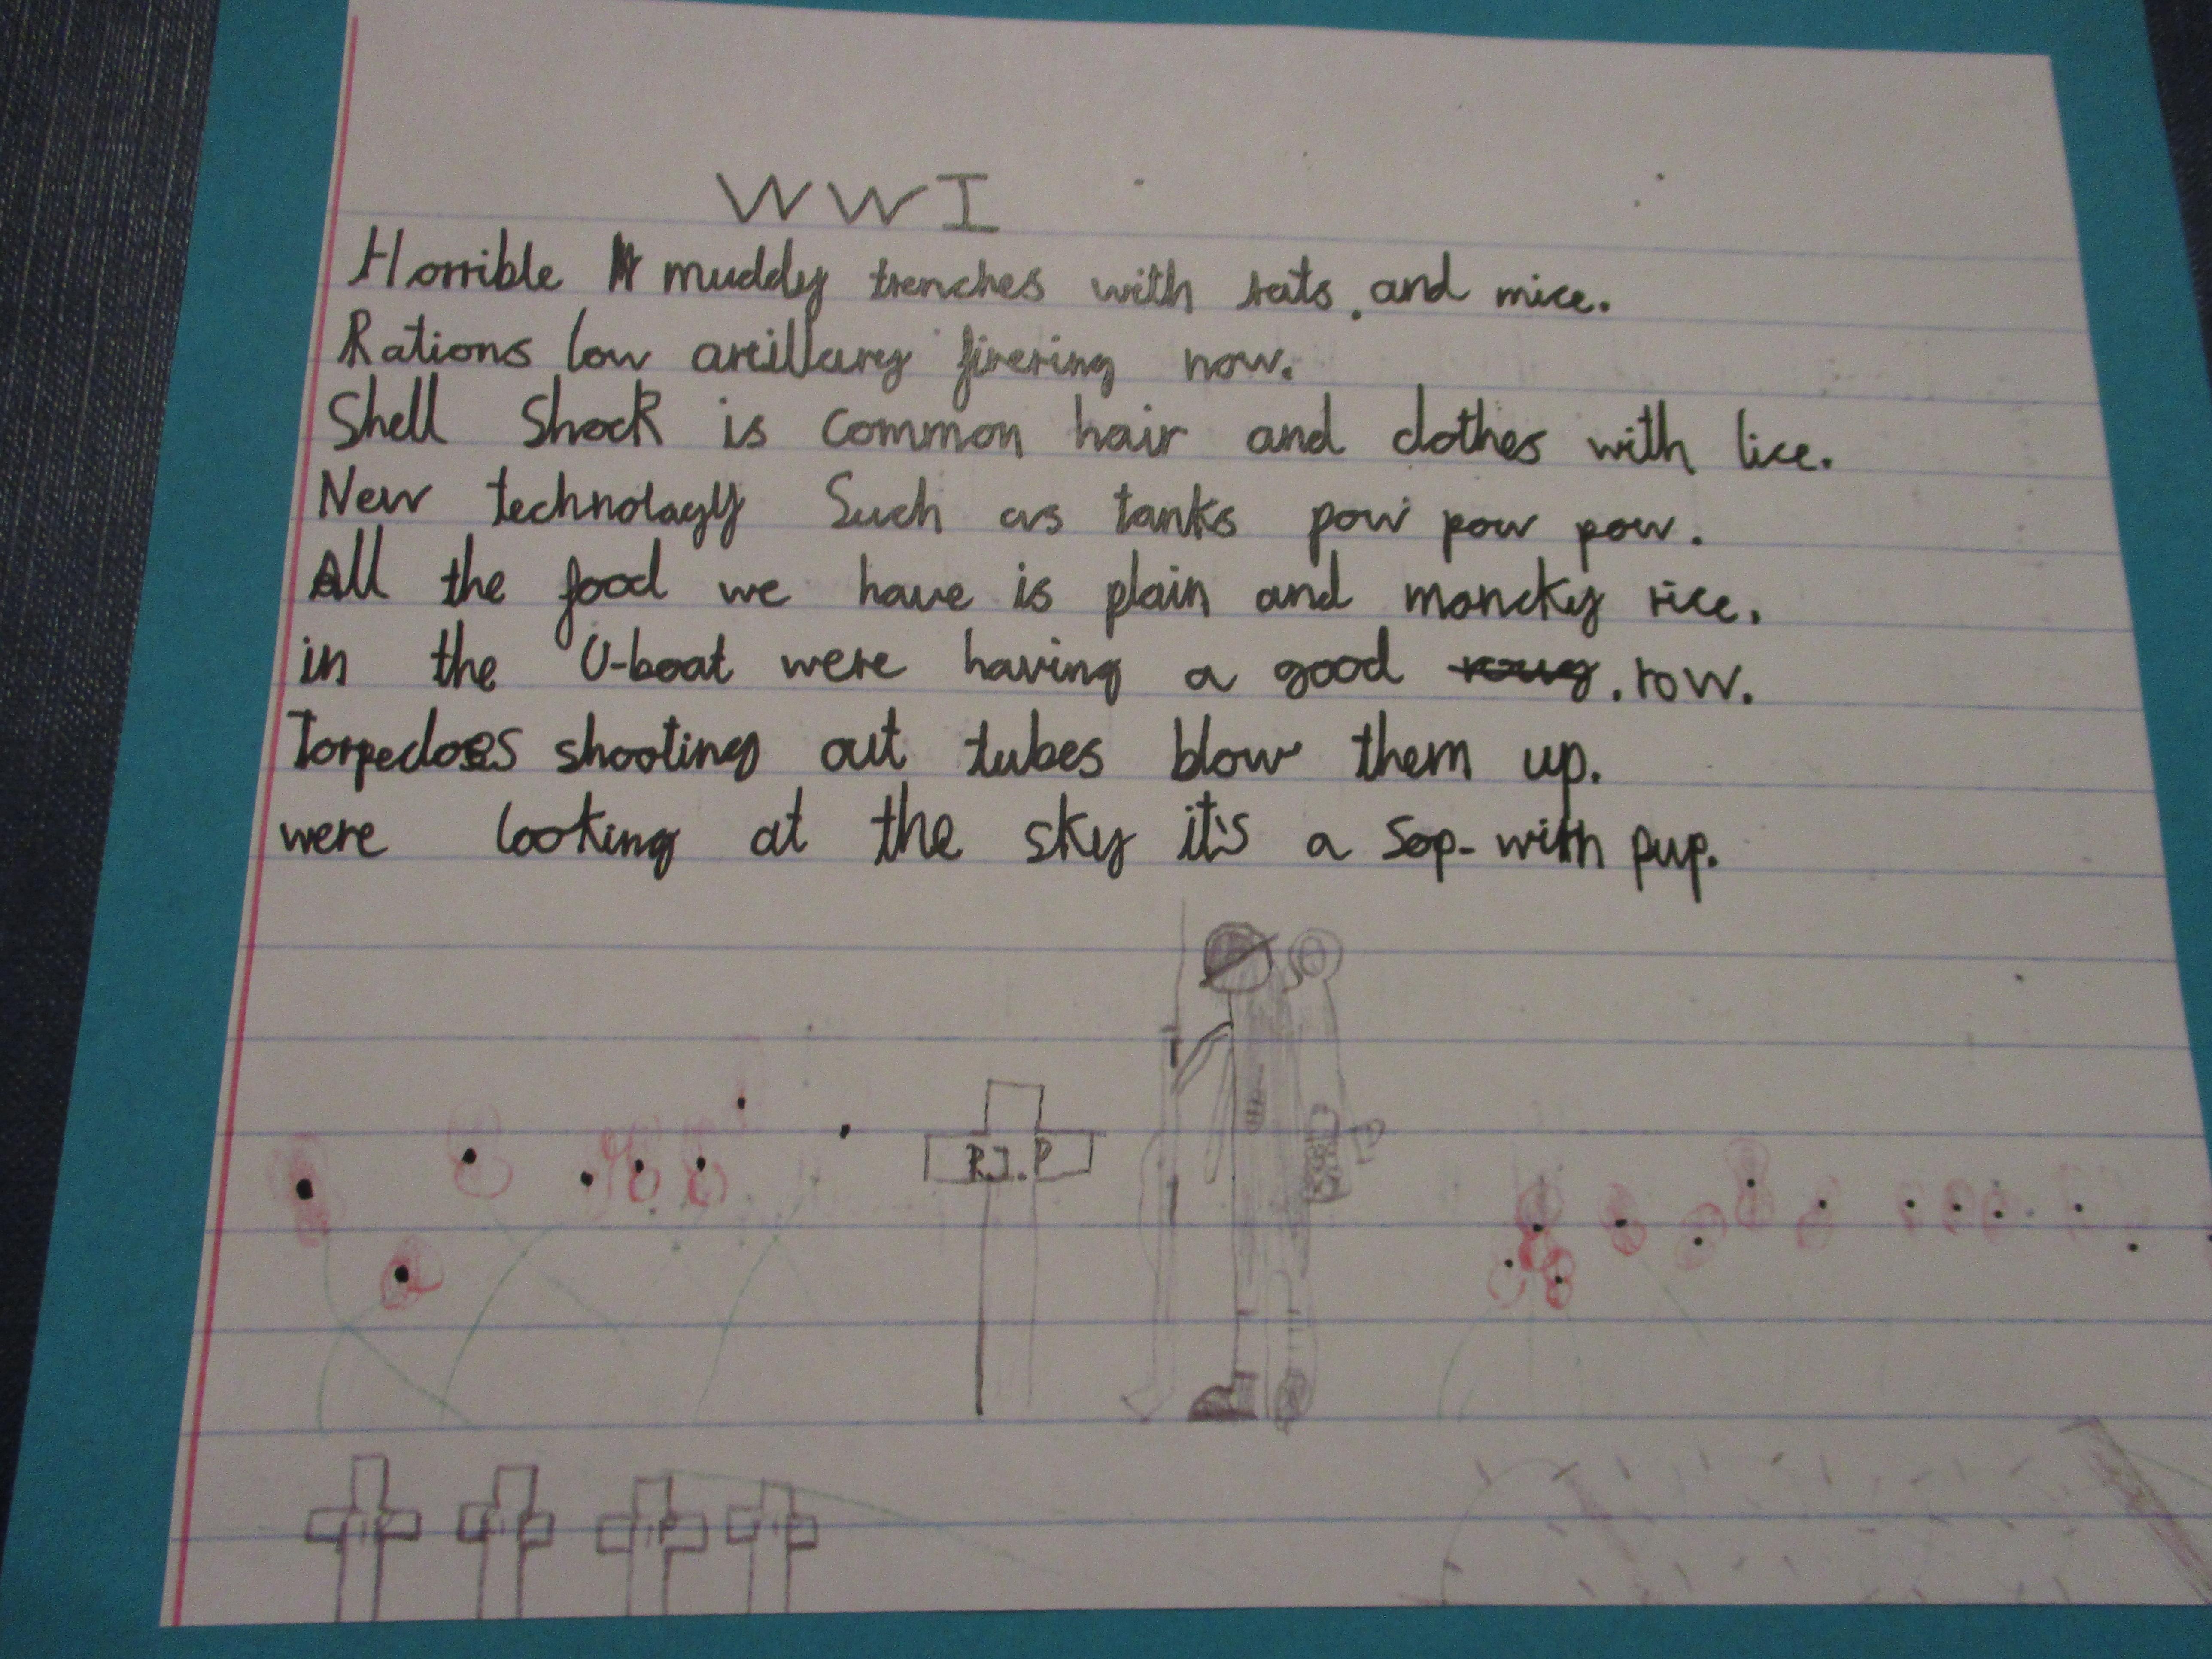 WWI
Horrible muddy trenches with rats. and mice.
Rations low artillary firering now.
Shell Shock is common hair and clothes with lice.
New technology Such as tanks pow pow pow.
All the food we have is plain and moncky rice.
in the U-boat were having a good row.
Torpedoes shooting out tubes blow them up.
were looking at the sky it's a Sop-with pup.
R.I.P